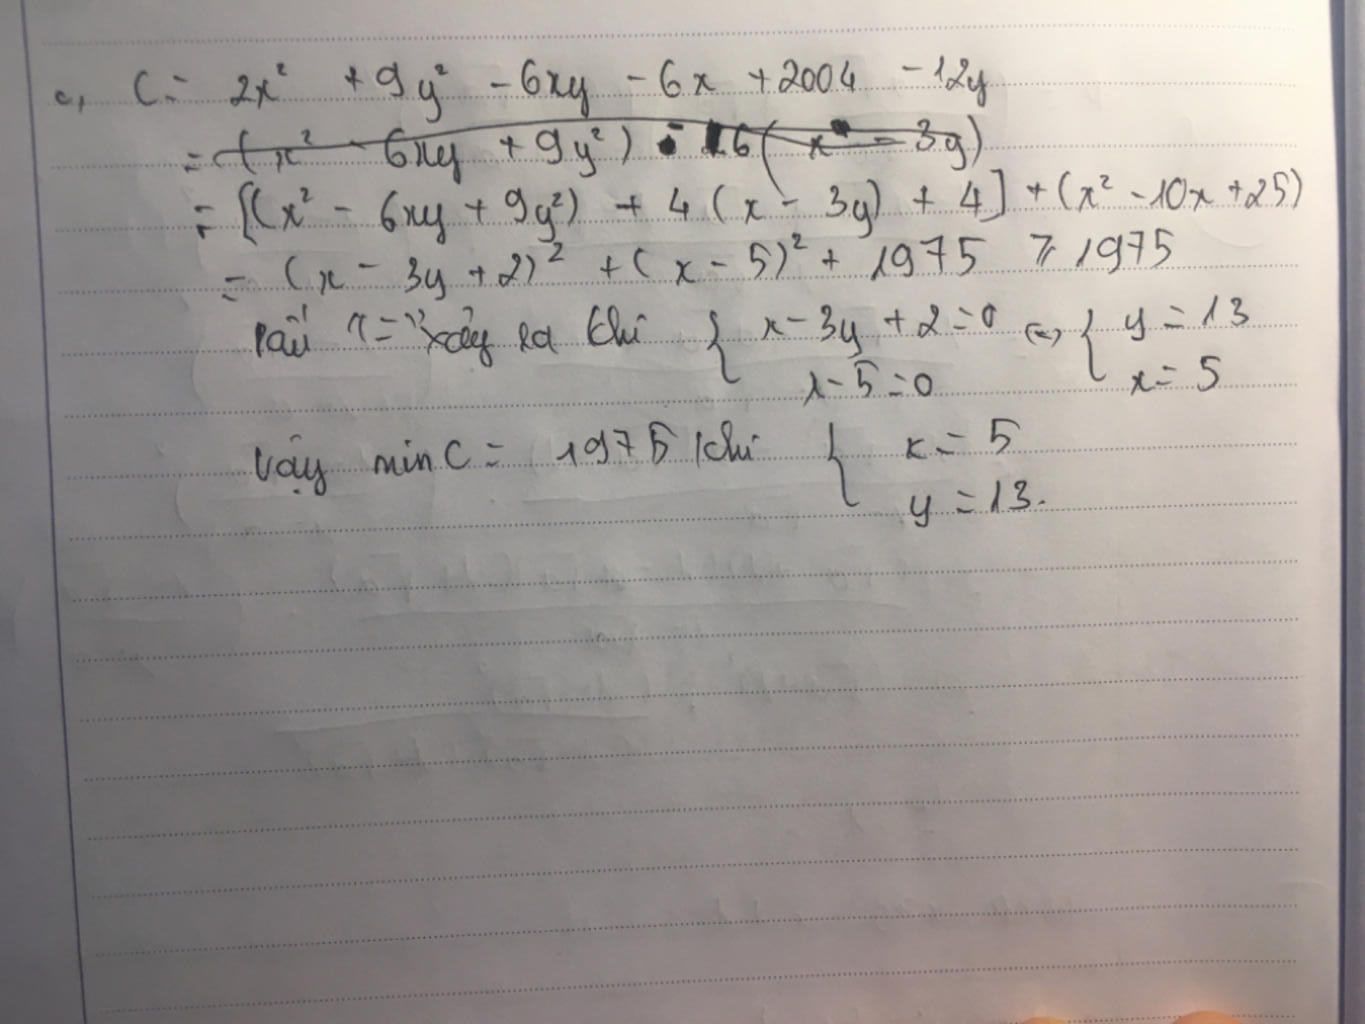 c, C = 2x² + 9y² - 6xy - 6x + 2004 - 12y
= (x² - 6xy + 9y²) - 6(x - 3y)
= [(x² - 6xy + 9y²) + 4(x - 3y) + 4] + (x² - 10x + 25)
= (x - 3y + 2)² + (x - 5)² + 1975 ⩾ 1975
Dấu "=" xảy ra khi { x - 3y + 2 = 0 (=) { y = 13
x - 5 = 0 x = 5
Vậy min C = 1975 khi { x = 5
y = 13.